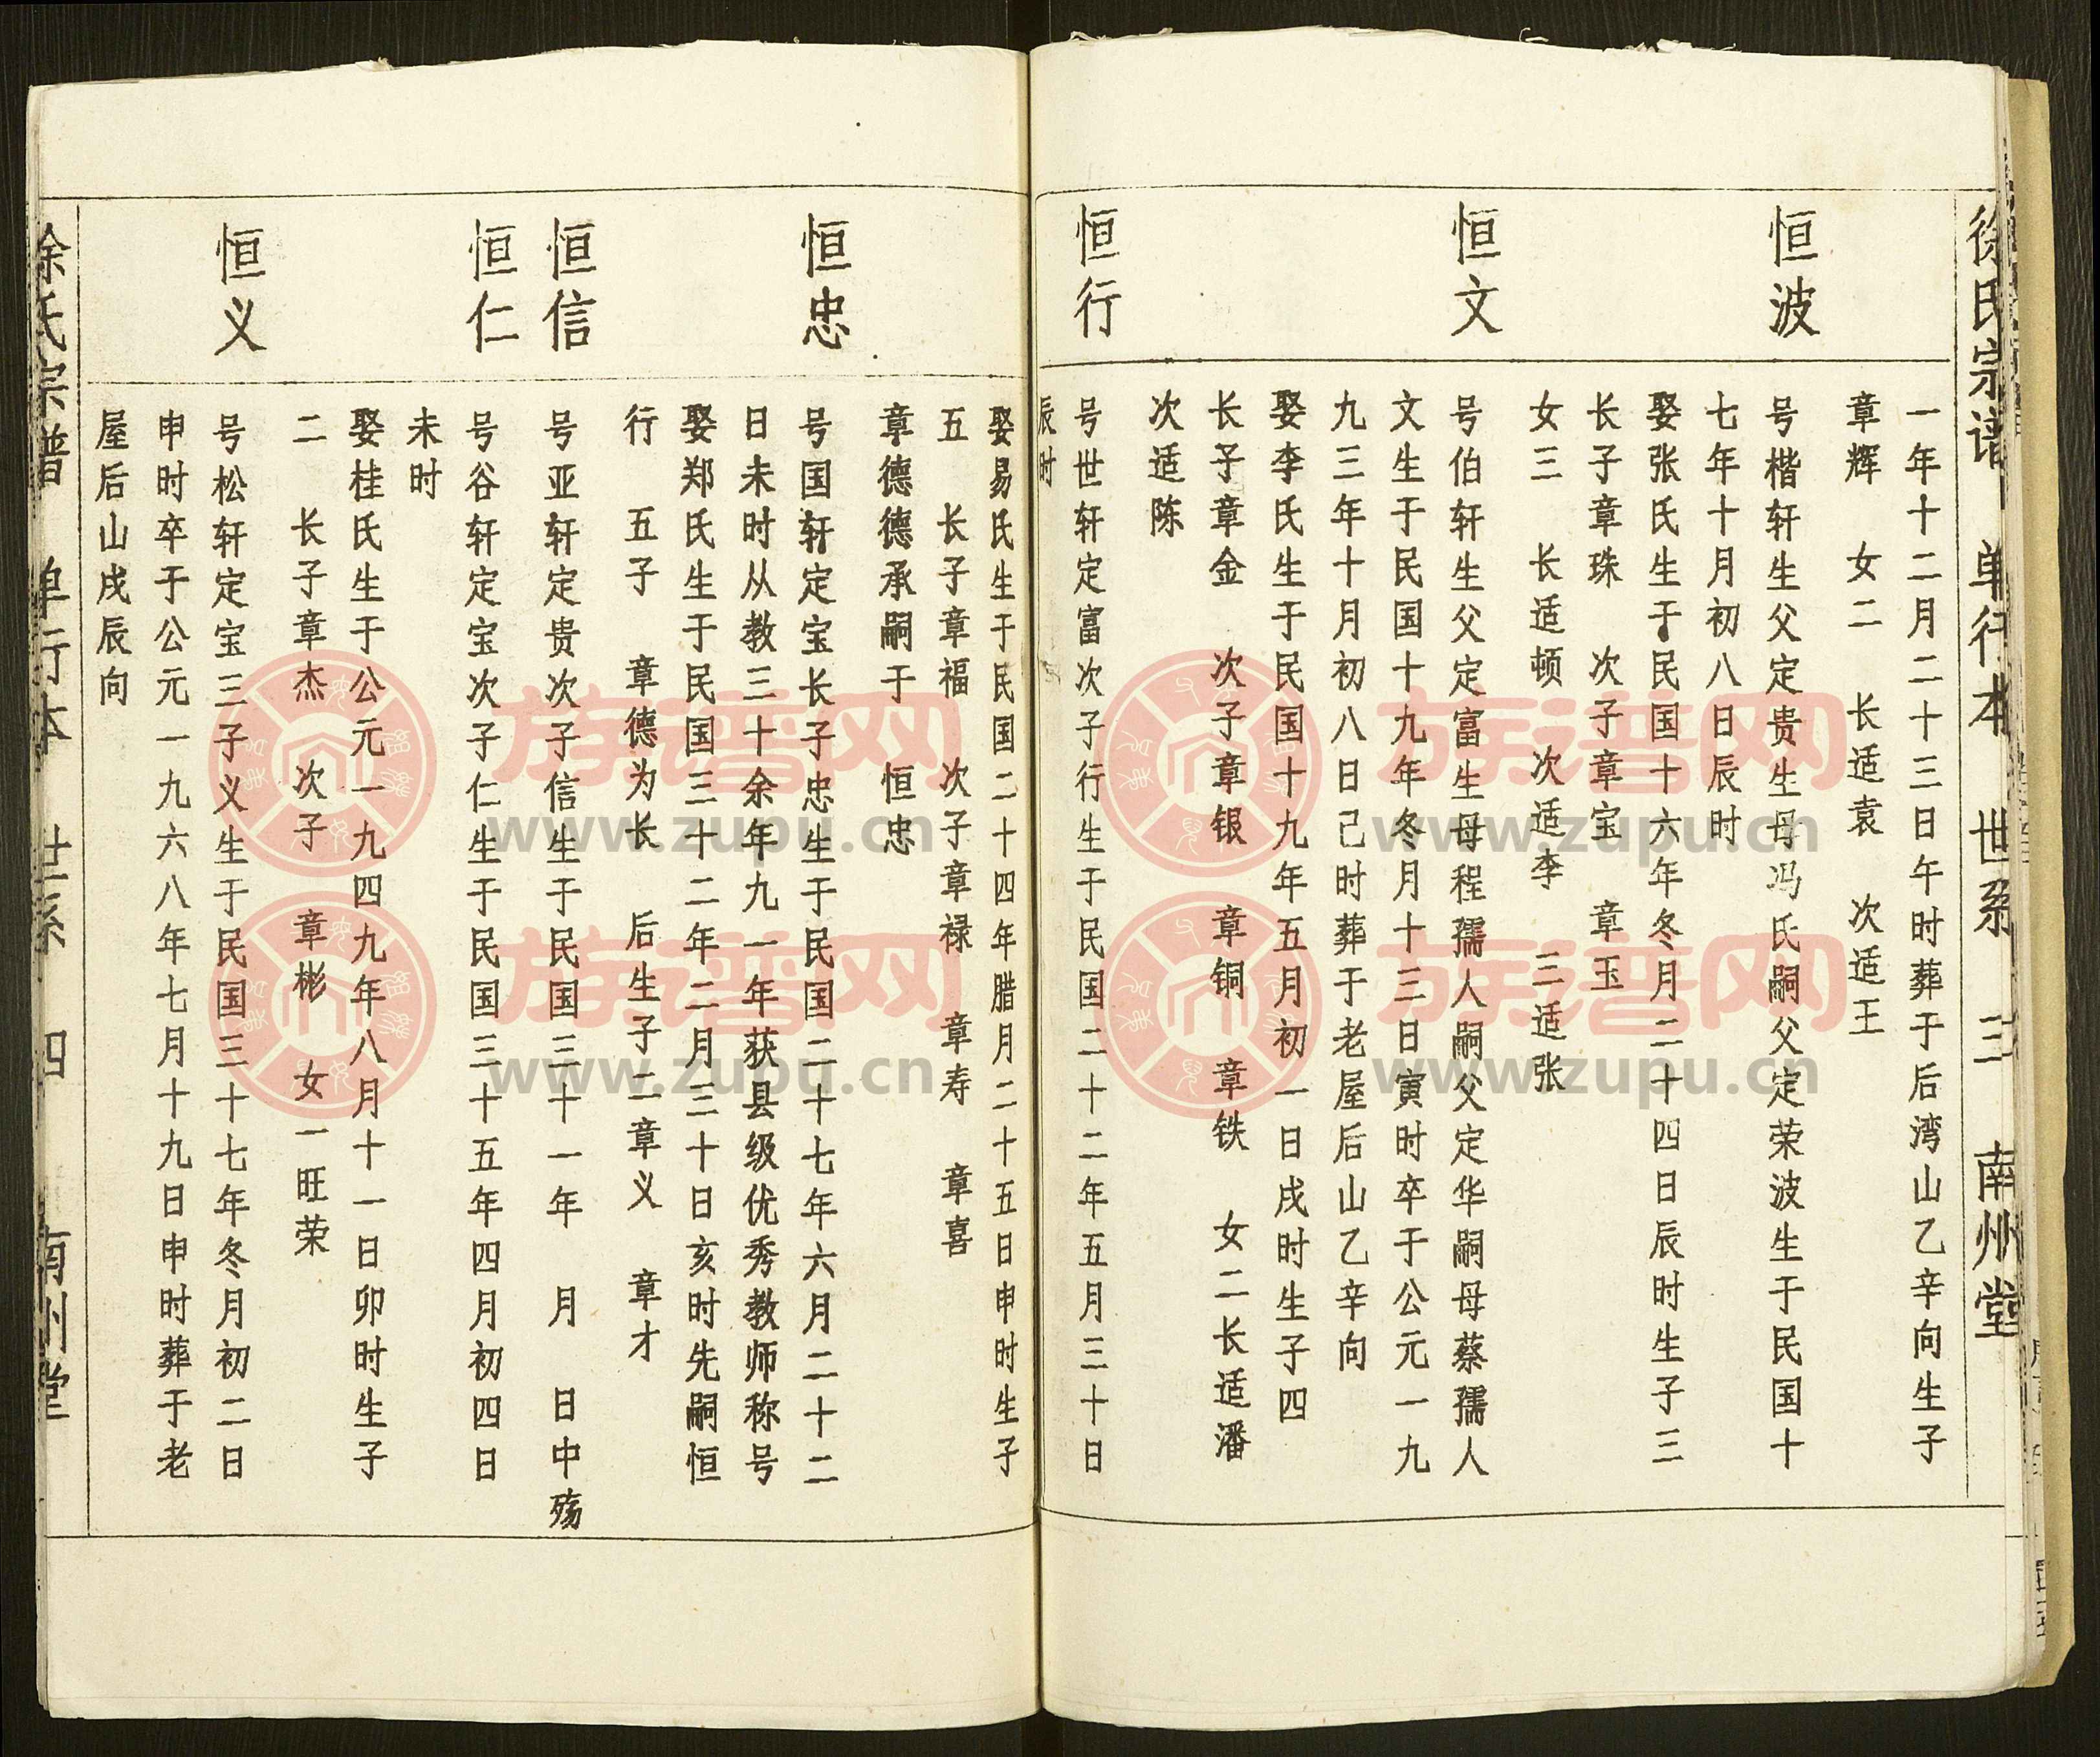 徐氏宗谱 单行本 世系 三 南州堂
一年十二月二十三日午时葬于后湾山乙辛向生子
章辉 女二 长适袁 次适王
恒波
号楷轩生父定贵生母冯氏嗣父定荣波生于民国十
七年十月初八日辰时
娶张氏生于民国十六年冬月二十四日辰时生子三
长子章珠 次子章宝 章玉
女三 长适顿 次适李 三适张
恒文
号伯轩生父定富生母程孺人嗣父定华嗣母蔡孺人
文生于民国十九年冬月十三日寅时卒于公元一九
九三年十月初八日己时葬于老屋后山乙辛向
娶李氏生于民国十九年五月初一日戌时生子四
长子章金 次子章银 章铜 章铁 女二长适潘
次适陈
恒行
号世轩定富次子行生于民国二十二年五月三十日
辰时
娶易氏生于民国二十四年腊月二十五日申时生子
五 长子章福 次子章禄 章寿 章喜
章德德承嗣于 恒忠
恒忠
号国轩定宝长子忠生于民国二十七年六月二十二
日未时从教三十余年九一年获县级优秀教师称号
娶郑氏生于民国三十二年二月三十日亥时先嗣恒
行 五子 章德为长 后生子二章义 章才
恒信
号亚轩定贵次子信生于民国三十一年 月 日中殇
恒仁
号谷轩定宝次子仁生于民国三十五年四月初四日
未时
娶桂氏生于公元一九四九年八月十一日卯时生子
二 长子章杰 次子 章彬 女一旺荣
恒义
号松轩定宝三子义生于民国三十七年冬月初二日
申时卒于公元一九六八年七月十九日申时葬于老
屋后山戌辰向
徐氏宗谱 单行本 世系 四 南州堂
族谱网
www.zupu.cn
族谱网
www.zupu.cn
族谱网
www.zupu.cn
族谱网
www.zupu.cn